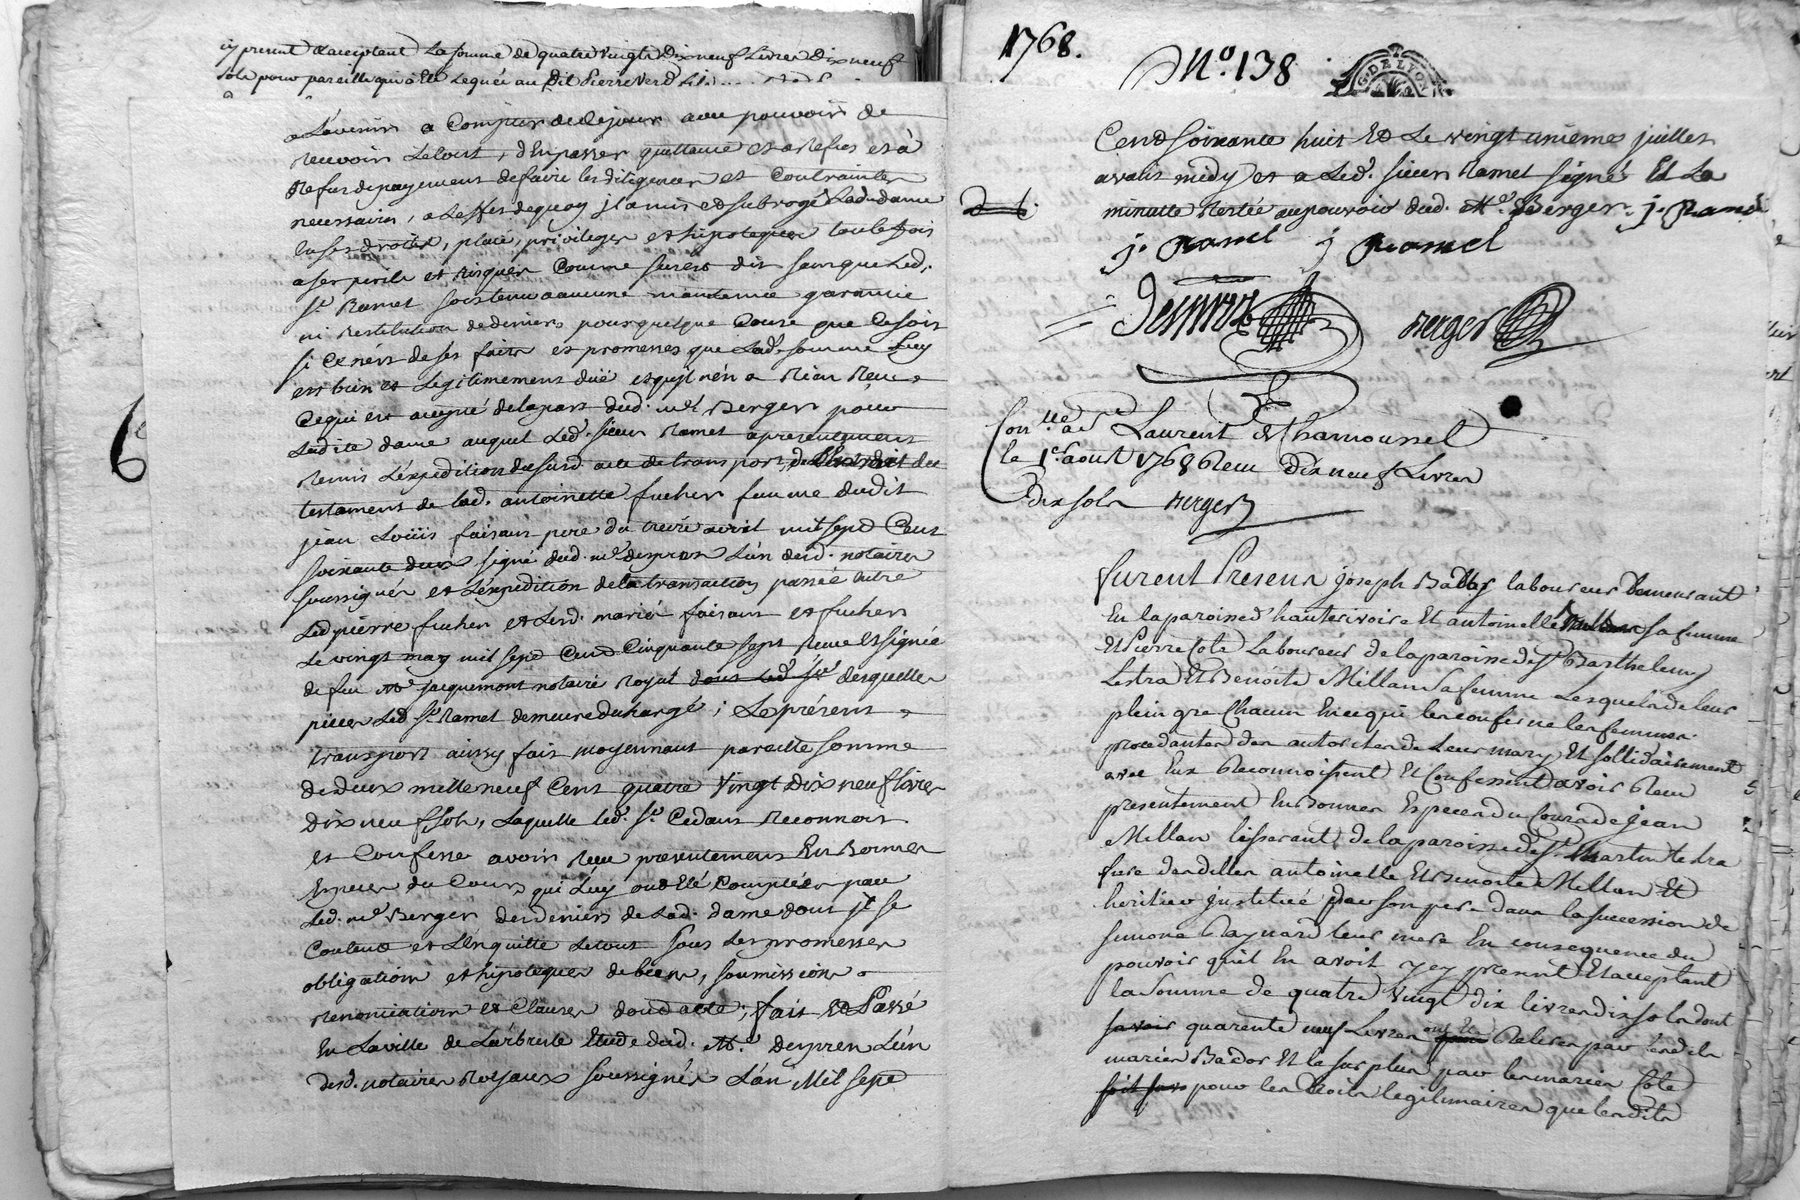 cy present & acceptant La somme de quatre vingts Dix neuf Livres Dix neuf
sols pour pareille qui a Eté Leguée au dit Pierre Verd
a Lavenir a Compter de ce jour avec pouvoir de
recevoir Letout, d'En passer quittance et a Refus et à
Refus de payement de faire les diligences et Contraintes
necessaires, a Leffet de quoy jl a mis et subrogé Lad. dame
En ses droits, place, privileges et hipoteques toute fois
a ses perils et risques Comme sera dit sans que Led.
Sr. Ramet soit tenu a aucune maintenue garantie
ni restitution de deniers pour quelque Cause que Ce soit
si Ce n'est de ses faits et promesses que Lad. somme Luy
est bien et Legitimement duë et qu'jl n'en a Rien Reçu
Ce qui est accepté de la part dud. me Berger pour
Ladite dame auquel Led. sieur Ramet a presentement
Remis L'expedition du susd. acte de transport, de L'extrait du
testament de lad. antoinette fucher femme dudit
jean Loüis faisant pere du treize avril mil sept Cent
soixante deux signé dud. me despres L'un desd. notaires
soussignés et L'expedition de la transaction passée entre
Led. pierre fucher et Lesd. mariés faisant et fucher
Le vingt may mil sept Cent Cinquante sept Reçue Et signée
de feu Me jacquemont notaire Royal dont Led. Sr. desquelles
pieces Led. Sr. Ramet demeure dechargé ; Le présent
transport aussy fait moyennant pareille somme
de deux mille neuf Cent quatre Vingt Dix neuf livres
Dix neuf sols, Laquelle led. Sr. Cedant Reconnoit
et Confesse avoir Reçu presentement En Bonnes
Especes du Cours qui Luy ont Eté Comptées par
Led. me Berger des deniers de Lad. dame dont jl se
Contente et L'En quitte Letout sous Les promesses
obligation et hipoteques de biens, soumissions
Renonciation et Clauses dond. acte ; fait Et Passé
En La ville de Larbresle Etude dud. Me. despres L'un
desd. notaires Royaux soussignés L'an Mil sept
1768.
No. 138
G. DE LYON
Cent Soixante huit Et Le vingt unieme juillet
avant midy et a Led. sieur Ramet signé Et La
minutte Restée au pouvoir dud. Me. Berger. j. Ramel
j. Ramel j Ramel
Despres Berger
Conlle. a St Laurent de Chamousset
le 1er. aout 1768 Reçu dix neuf Livres
dix sols Berger
furent Presens joseph Bador laboureur demeurant
En la paroisse d'hauterivoire Et antoinette Millan sa femme
Et Pierre Cote Laboureur de la paroisse de St. Barthelemy
Lestra Et Benoite Millan sa femme Lesquels de leur
plein gre Chacun En ce qui les conserne les femmes
procedantes des autorites de Leurs marys Et sollidairement
avec Eux Reconnoissent Et Confessent avoir Reçu
presentement En Bonnes Especes du Cours de jean
Millan tisserant de la paroisse de St. Martin Lestra
frere desdites antoinette Et Benoite Millan Et
heritier jnstitué par son pere dans la succession de
simone Paynard leur mere En consequence du
pouvoir qu'il En avoit jcy present Et acceptant
la Somme de quatre Vingt dix livres dix sols dont
savoir quarente neuf Livres ont Eté Retirés par lesdits
mariés Bador Et le surplus par les mariés Cote
soit sur pour les droits legitimaires que lesdits